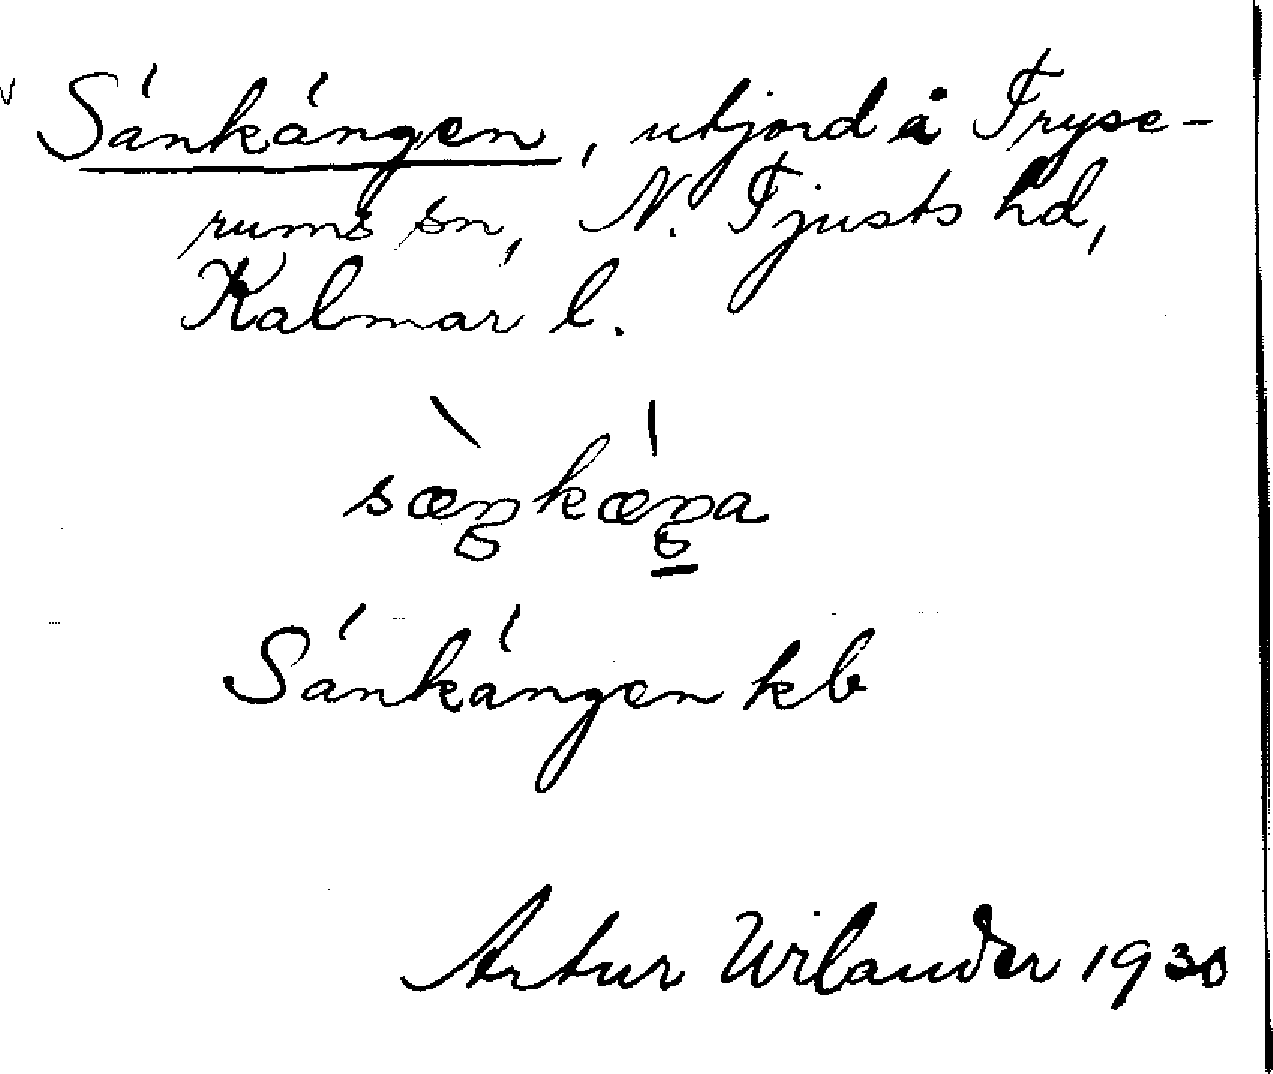 Sänkängen, utjord å Tryse-
rums sn, N. Tjusts hd,
Kalmar l.
sæŋkæŋa
Sänkängen kb
Artur Wilander 1930